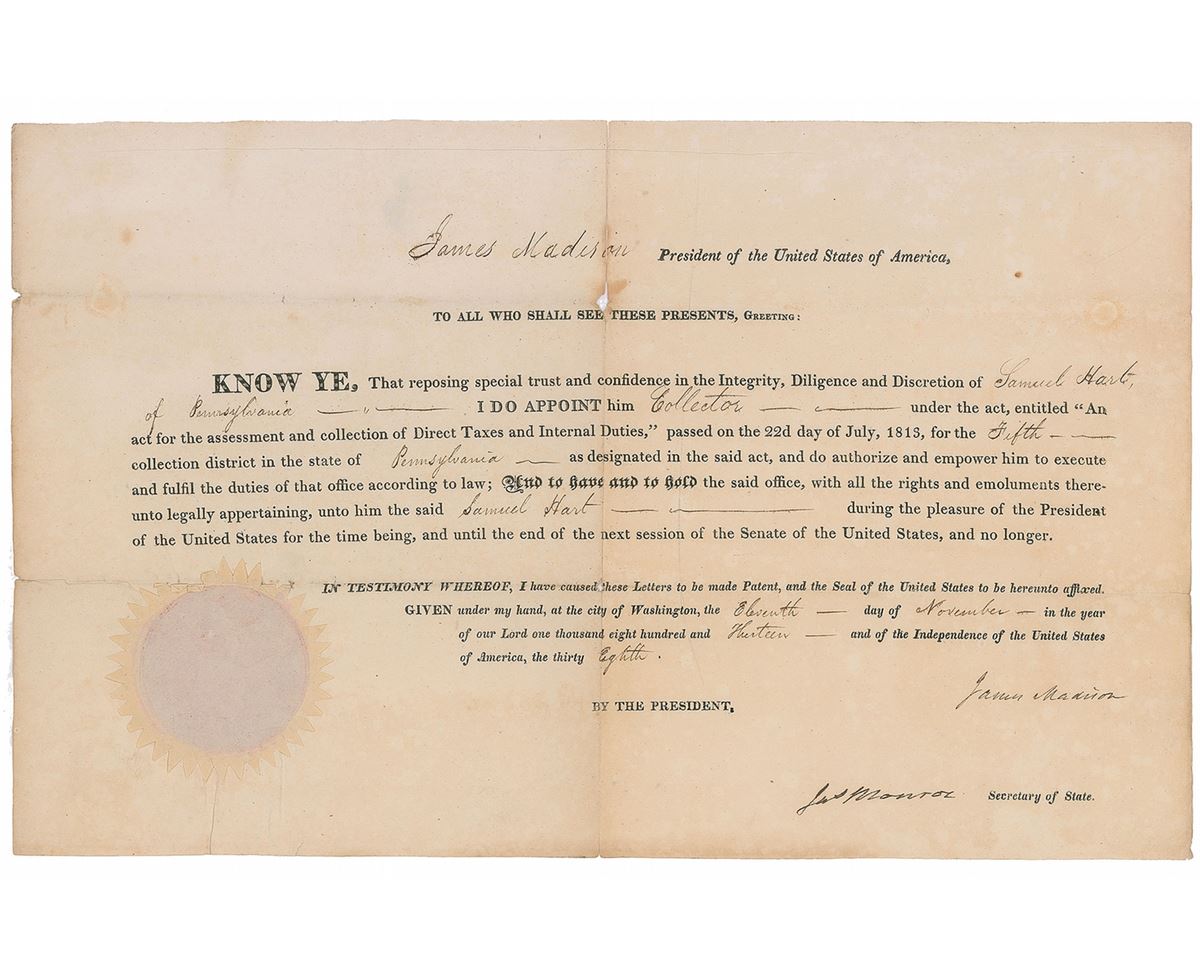 James Madison President of the United States of America,
TO ALL WHO SHALL SEE THESE PRESENTS, GREETING:
KNOW YE, That reposing special trust and confidence in the Integrity, Diligence and Discretion of Samuel Hart,
of Pennsylvania — " — I DO APPOINT him Collector — — under the act, entitled “An
act for the assessment and collection of Direct Taxes and Internal Duties,” passed on the 22d day of July, 1813, for the Fifth — —
collection district in the state of Pennsylvania — as designated in the said act, and do authorize and empower him to execute
and fulfil the duties of that office according to law; And to have and to hold the said office, with all the rights and emoluments there-
unto legally appertaining, unto him the said Samuel Hart — — during the pleasure of the President
of the United States for the time being, and until the end of the next session of the Senate of the United States, and no longer.
IN TESTIMONY WHEREOF, I have caused these Letters to be made Patent, and the Seal of the United States to be hereunto affixed.
GIVEN under my hand, at the city of Washington, the Eleventh — day of November — in the year
of our Lord one thousand eight hundred and Thirteen — and of the Independence of the United States
of America, the thirty Eighth.
James Madison
BY THE PRESIDENT,
Jas Monroe Secretary of State.